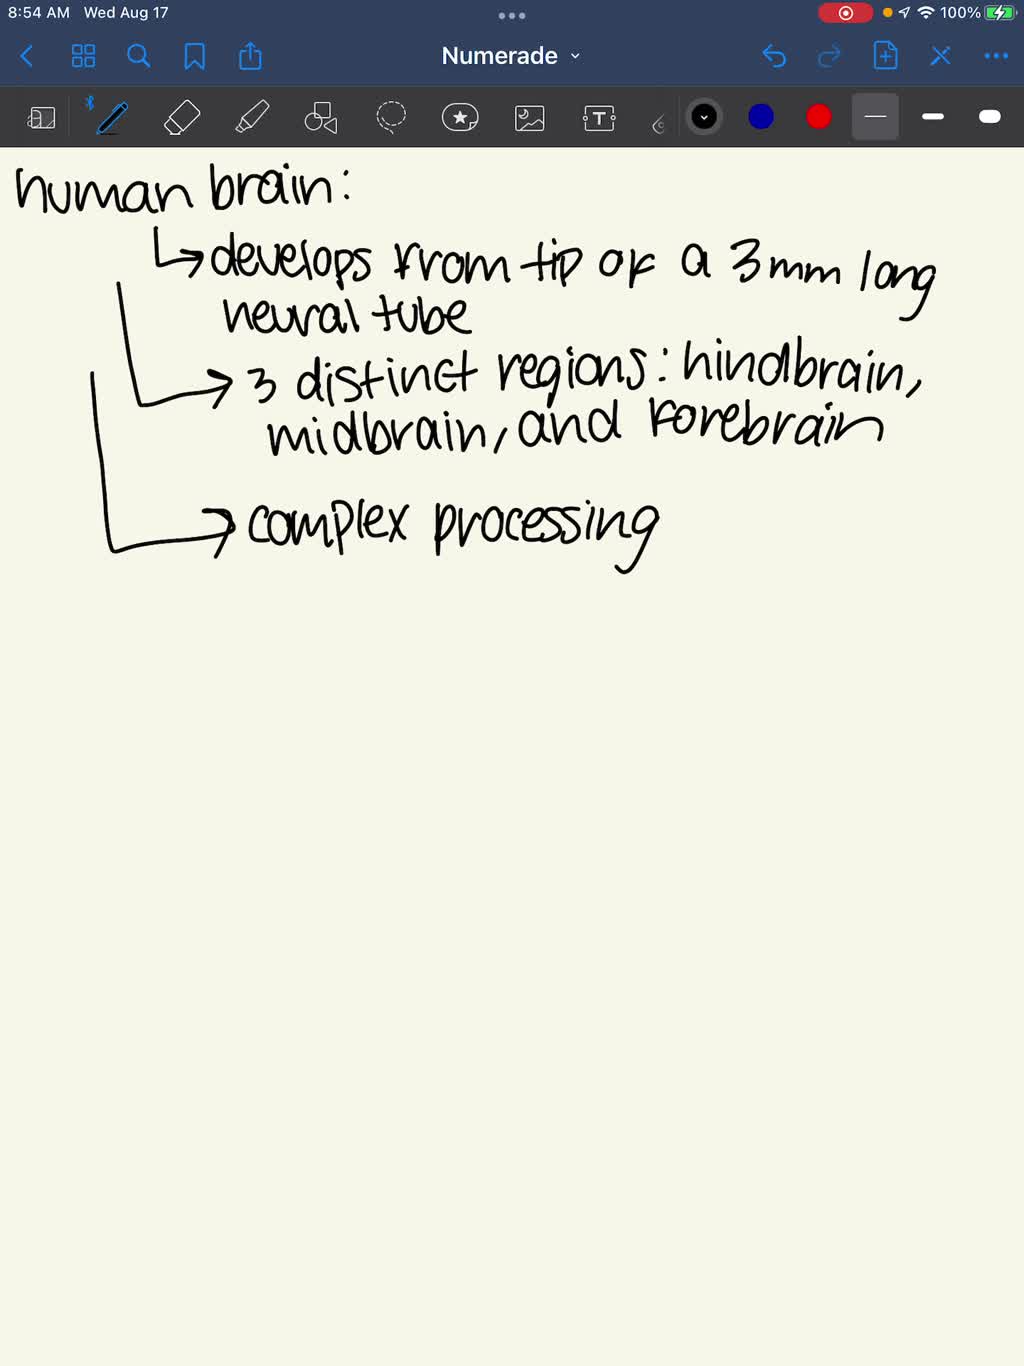 8:54 AM Wed Aug 17 100%
Numerade
T
human brain:
↳ develops from tip of a 3mm long
neural tube
→ 3 distinct regions: hindbrain,
midbrain, and forebrain
→ complex processing